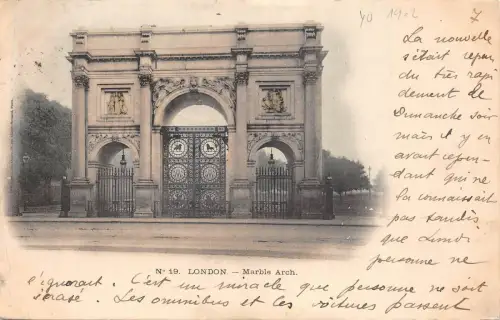 7
La nouvelle
s'était répan
du très rapi
dement de
Dimanche soir
mais il y en
avait cepen-
dant qui ne
la connaissait
pas tandis
que Lundi
personne ne
Nº 19. LONDON. — Marble Arch.
l'ignorait. C'est un miracle que personne ne soit
écrasé. Les omnibus et les voitures passent